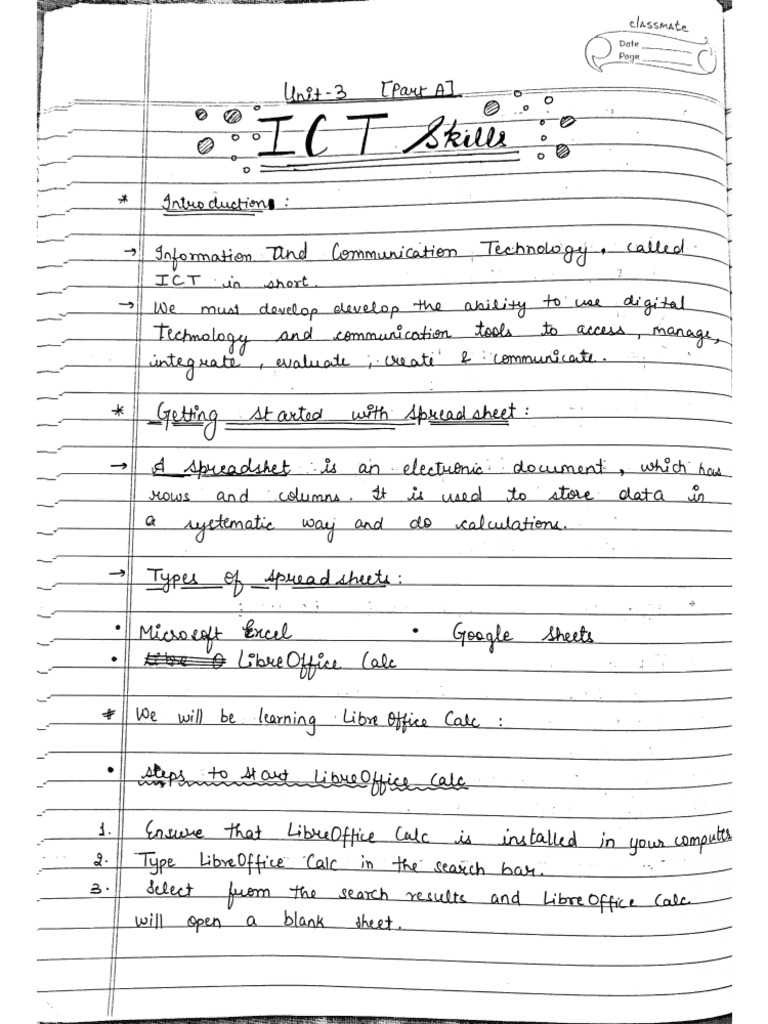 classmate
Date
Page
Unit-3 [Part A]
ICT Skills
* Introduction :
→ Information and Communication Technology, called
ICT in short.
→ We must develop develop the ability to use digital
Technology and communication tools to access, manage,
integrate, evaluate, create & communicate.
* Getting started with spreadsheet :
→ A spreadshet is an electronic document, which has
rows and columns. It is used to store data in
a systematic way and do calculations.
→ Types of spreadsheets :
• Microsoft Excel • Google Sheets
• LibreOffice Calc
* We will be learning LibreOffice Calc :
• Steps to start LibreOffice Calc
1. Ensure that LibreOffice Calc is installed in your computer
2. Type LibreOffice Calc in the search bar.
3. Select from the search results and LibreOffice Calc
will open a blank sheet.